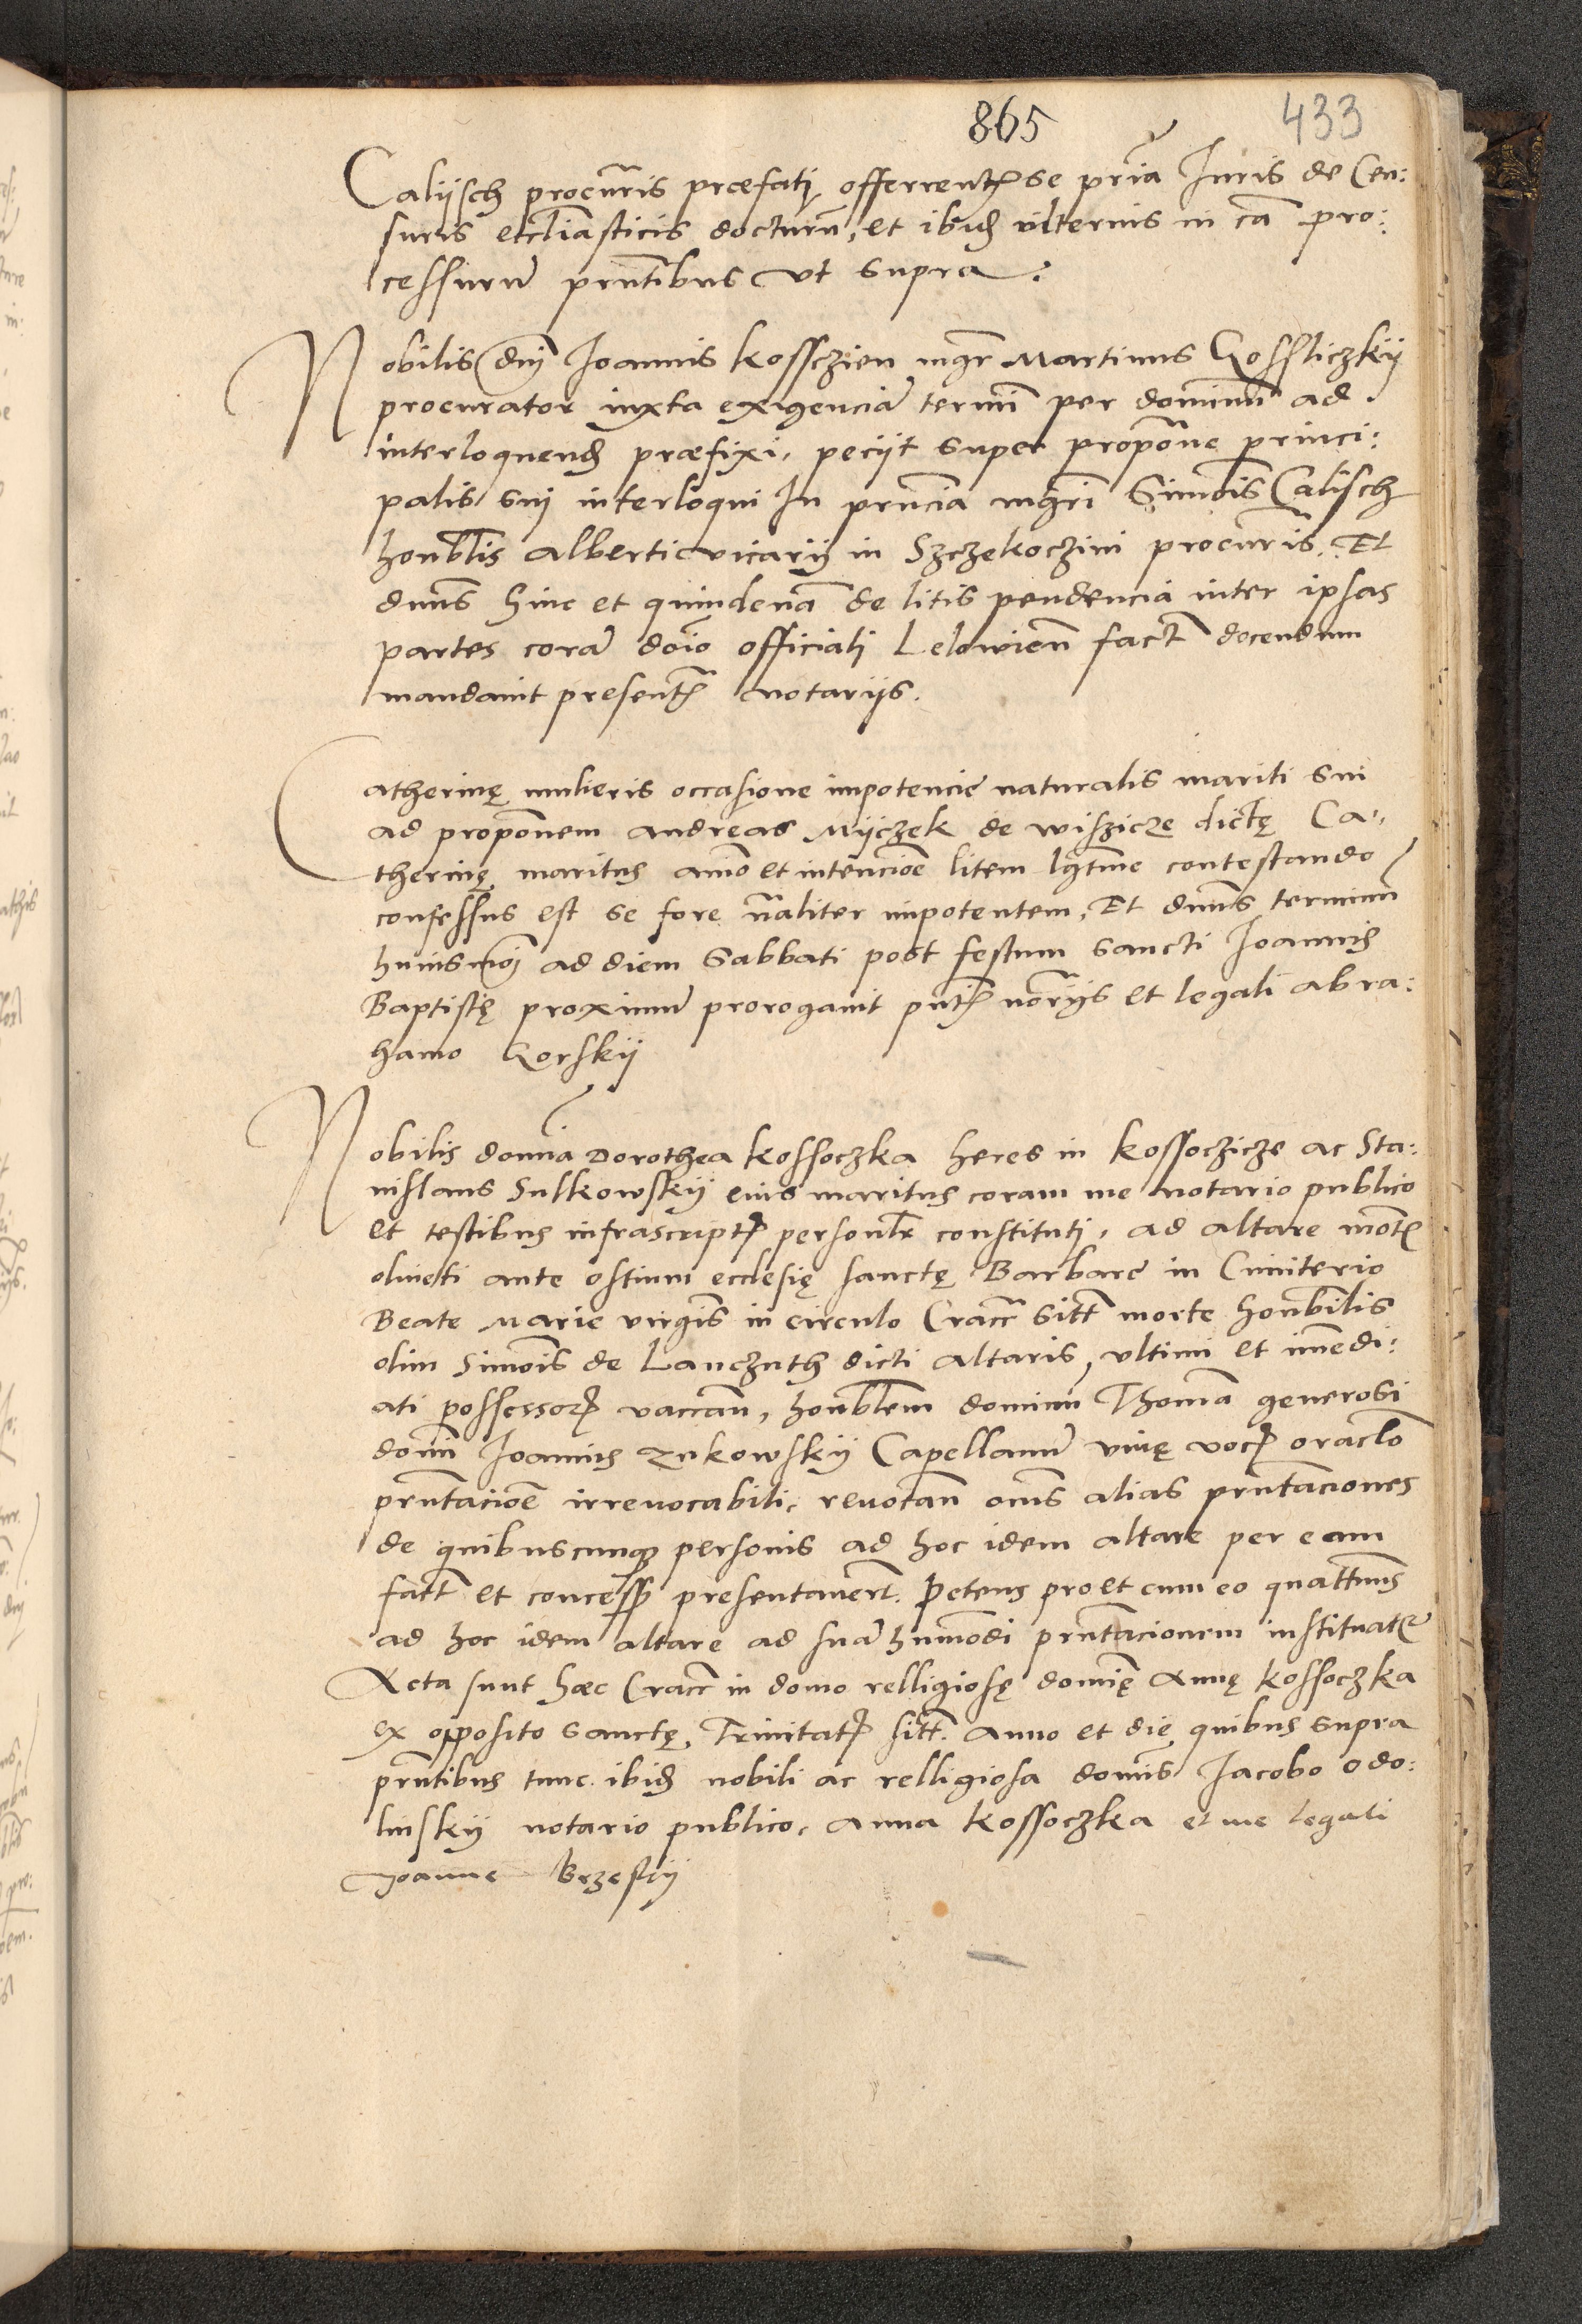 865 433
Caliisch procuris præfati offerrentis se pria Juris de Cen:
suris eccliasticis docturu, et ibid ulterius in ca pro:
cessuru pntibus vt supra:
Nobilis dni Joannis Kossczien mgr Martinus Gossliczkÿ
procurator iuxta exigencia termi per dominu ad
interloquend præfixi, peciit super propone princi:
palis sui interloqui In pncia mgri Simois Calisch
honblis Alberti vicarij in Szczekoczini procuris. Et
dnns hinc et quindena de litis pendencia inter ipsas
partes cora doio officiali Lelowien fact docendum
mandauit present notariis.
Catherinę mulieris occasione impotencie naturalis mariti sui
ad proponem Andreas Mÿczek de Wiszicze dictę Ca:
therinę maritus aio et intencioe litem lgtme contestando
confessus est se fore nraliter impotentem, Et dnns terminu
huiusmoi ad diem Sabbati post festum sancti Joannis
Baptistę proximu prorogauit pnt noriis et legali Abra:
hamo Gorskÿ
Nobilis domia Dorothea Kossoczka heres in Kossoczicze ac Sta:
nislaus Sulkowskÿ eius maritus coram me notario publico
et testibus infrascript personlr constituti, ad altare mot
oliueti ante ostium ecclesię sanctę Barbare in Cimiterio
Beate Marie virgis in circulo Cracc sitt morte honbilis
olim Simois de Lanczuth dicti altaris, vltimi et imedi:
ati possessor vaccan, honblem dominu Thoma generosi
domi Joannis Zukowskÿ Capellanu viuę voc oraclo
pntacioe irreuocabili, reuocan ois alias pntaciones
de quibuscunq personis ad hoc idem altare per eam
fact et concess presentauert. Petens pro et cum eo quattnus
ad hoc idem altare ad sua humodi pntacionem instituat
Acta sunt hæc Cracc in domo relligiosę domię Annę Kossoczka
ex opposito Sanctę Trinitat sitt. Anno et die quibus supra
pntibus tunc ibid nobili ac relligiosa domis Jacobo Odo:
linskÿ notario publico, Anna Kossoczka et me legali
Joanne Brzeskÿ